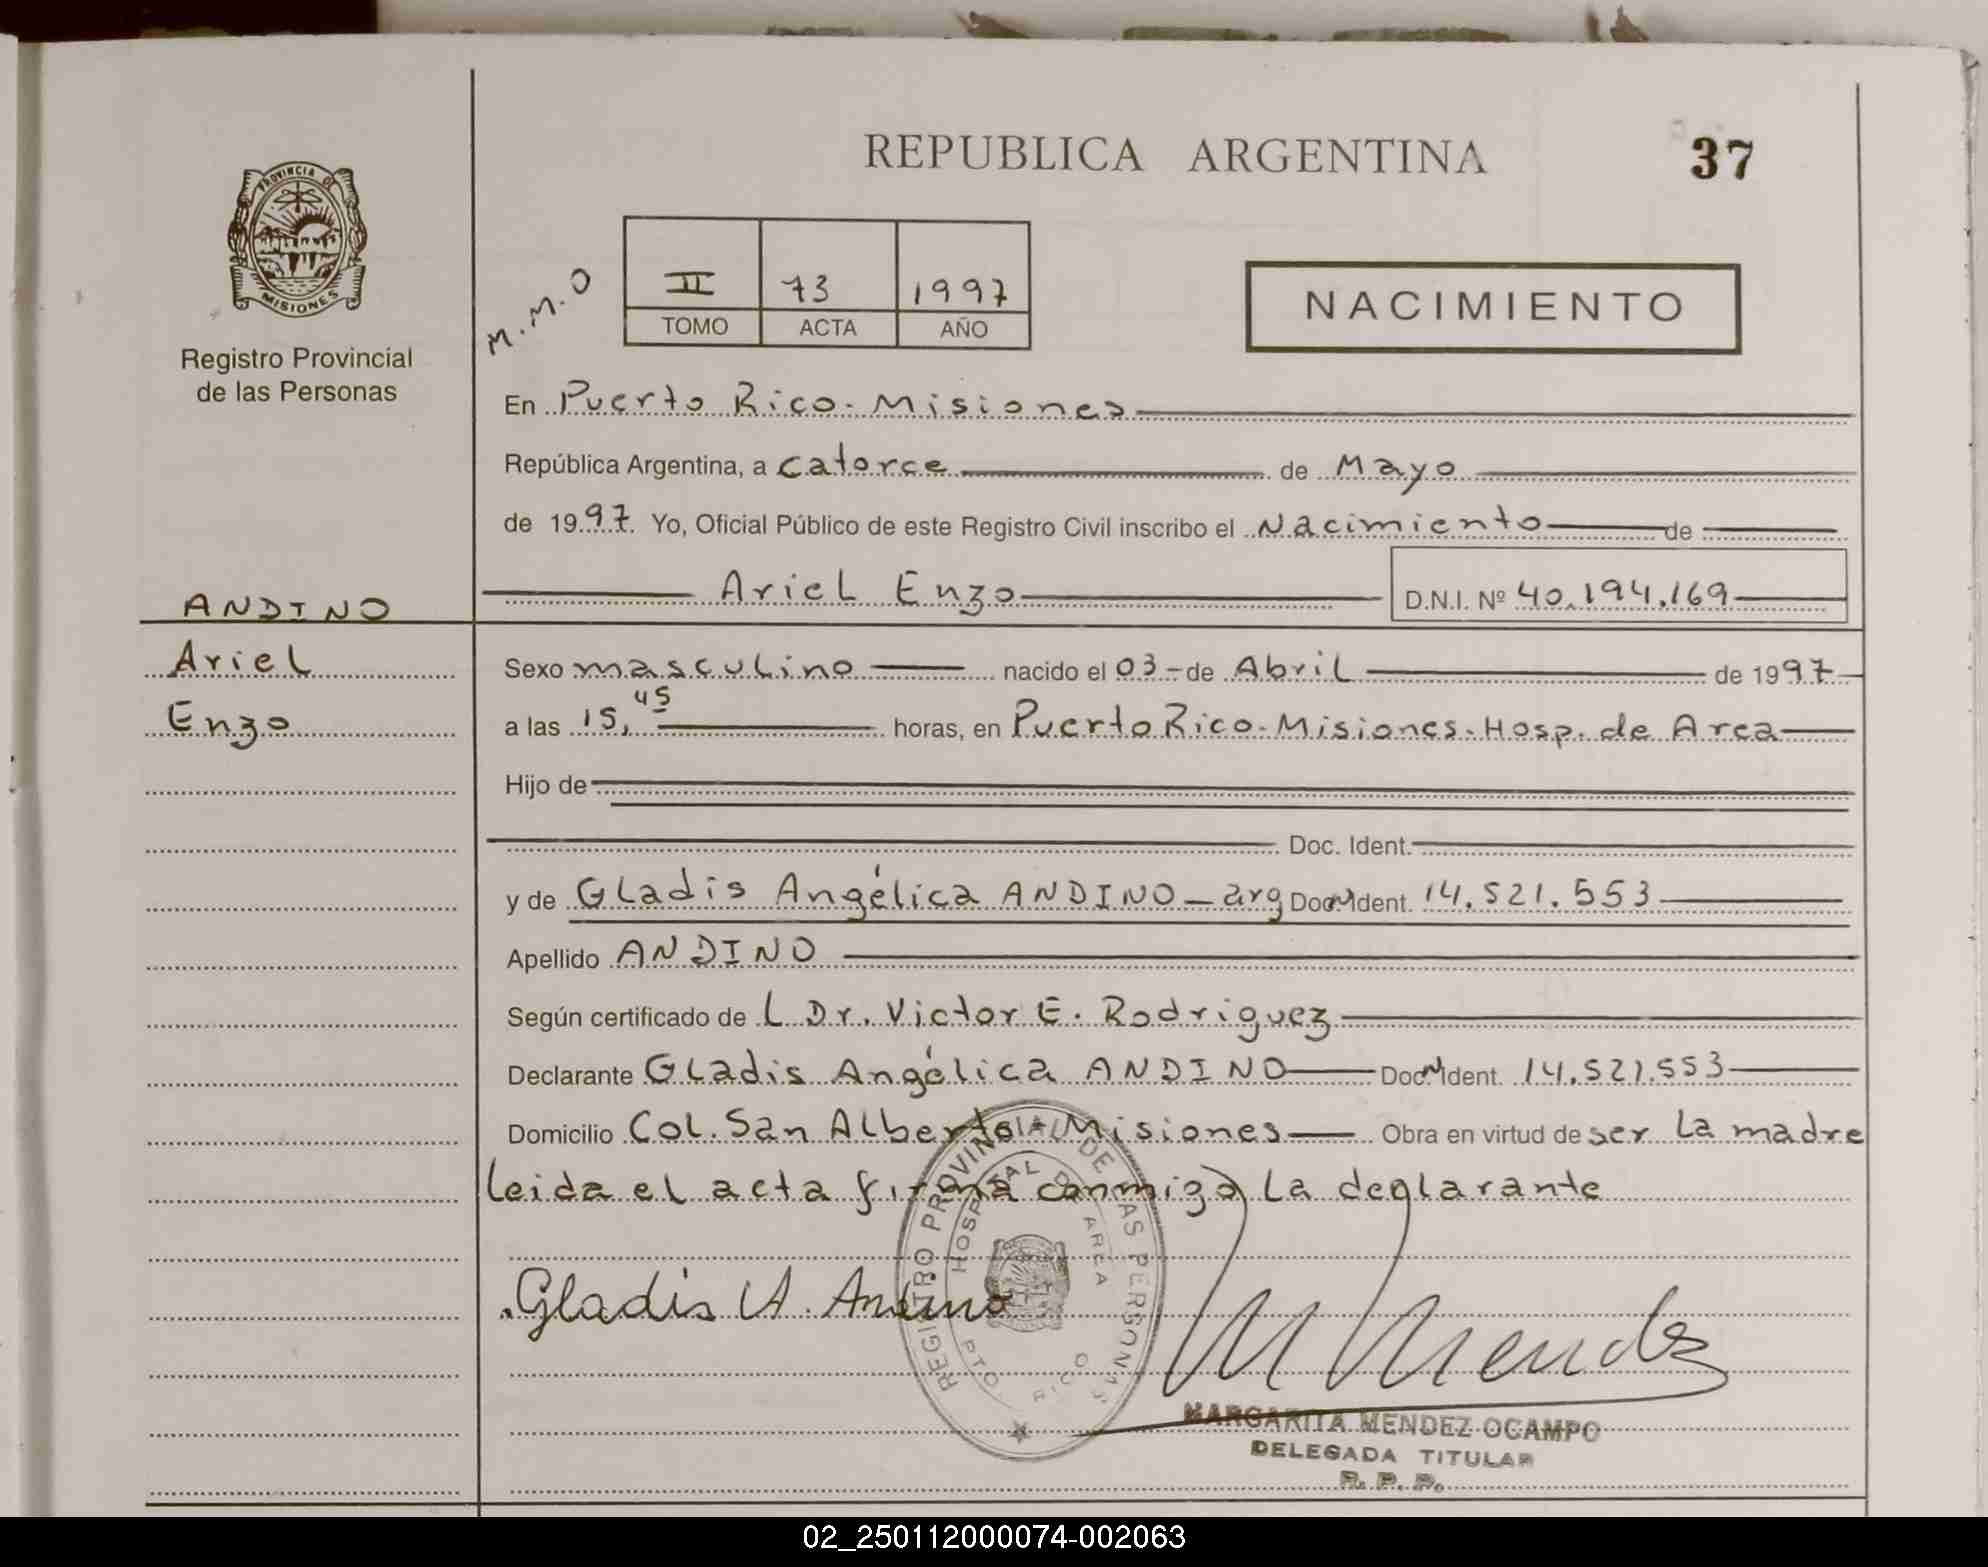 REPUBLICA ARGENTINA
37
PROVINCIA DE
MISIONES
Registro Provincial
de las Personas
M.M.O
II 73 1997
TOMO ACTA AÑO
NACIMIENTO
En Puerto Rico. Misiones
República Argentina, a catorce de Mayo
de 1997. Yo, Oficial Público de este Registro Civil inscribo el Nacimiento de
ANDINO
Ariel Enzo D.N.I. Nº 40.194.169
Ariel
Enzo
Sexo masculino nacido el 03 - de Abril de 1997
a las 15,45 horas, en Puerto Rico. Misiones. Hosp. de Area
Hijo de
Doc. Ident.
y de Gladis Angélica ANDINO - arg Doc. Ident. 14.521.553
Apellido ANDINO
Según certificado de L Dr. Victor E. Rodriguez
Declarante Gladis Angélica ANDINO Doc. Ident. 14.521.553
Domicilio Col. San Alberto Misiones Obra en virtud de ser la madre
leida el acta firma conmigo la declarante
REGISTRO PROVINCIAL DE LAS PERSONAS
HOSPITAL DE AREA
PTO. RICO
Gladis A. Andino
M Mendez
MARGARITA MENDEZ OCAMPO
DELEGADA TITULAR
R. P. P.
02_250112000074-002063